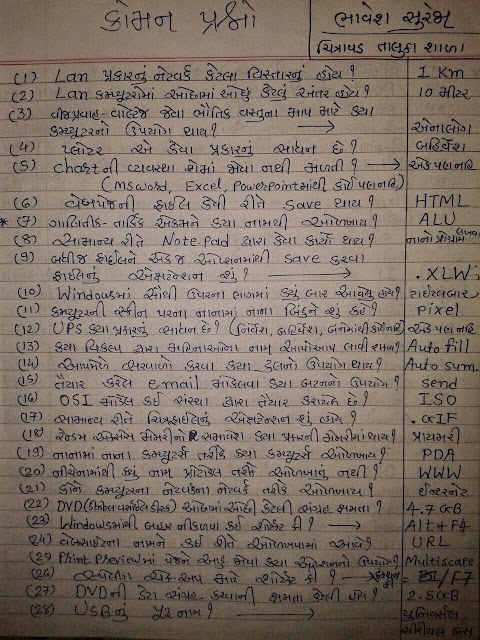 કોમન પ્રશ્નો
ભાવેશ સુરેમ
ચિત્રાવડ તાલુકા શાળા
(1) Lan પ્રકારનું નેટવર્ક કેટલા વિસ્તારનું હોય? 1 Km
(2) Lan કમ્પ્યુટરોમાં ઓછામાં ઓછું કેટલું અંતર હોય? 10 મીટર
(3) વીજપ્રવાહ-વોલ્ટેજ જેવા ભૌતિક વસ્તુના માપ માટે કયા
કમ્પ્યુટરનો ઉપયોગ થાય? → એનાલોગ
(4) પ્લોટર એ કેવા પ્રકારનું સાધન છે? બહિર્વેશ
(5) Chartની વ્યવસ્થા શેમાં જોવા નથી મળતી? → એકપણનહિ
(MSword, Excel, Powerpointમાંથી કોઈ પણ નહિ)
(6) વેબપેજની ફાઈલ કેવી રીતે save થાય? HTML
* (7) ગાણિતીક-તાર્કિક એકમને કયા નામથી ઓળખાય? ALU
(8) સામાન્ય રીતે NotePad દ્વારા કેવા કાર્ય થાય? નાનો પ્રોગ્રામ લખવા
(9) બધીજ ફાઈલને એક જ ઓપ્શનમાંથી save કરવા
ફાઈલનું એક્ષટેન્શન શું? → .XLW
(10) Windowsમાં સૌથી ઉપરના ભાગમાં કયું બાર આવેલું હોય? ટાઈટલબાર
(11) કમ્પ્યુટરની સ્ક્રીન પરના નાનામાં નાના બિંદુને શું કહે? pixel
(12) UPS કયા પ્રકારનું સાધન છે? (નિર્વેશ, બહિર્વેશ, બંનેમાંથી કોઈનહિ) એકપણ નહિ
(13) કયા વિકલ્પ દ્વારા મહિનાઓના નામ આપોઆપ લાવી શકાય? Auto fill
(14) આપમેળે સરવાળો કરવા કયા ટુલનો ઉપયોગ થાય? Auto sum
(15) તૈયાર કરેલ email મોકલવા કયા બટનનો ઉપયોગ? send
(16) OSI મોડેલ કઈ સંસ્થા દ્વારા તૈયાર કરાયેલ છે? ISO
(17) સામાન્ય રીતે ચિત્રફાઈલનું એક્ષટેન્શન શું હોય? .GIF
(18) રેન્ડમ એક્સેસ મેમરીનો સમાવેશ કયા પ્રકારની મેમરીમાં થાય? પ્રાયમરી
(19) નાનામાં નાના કમ્પ્યુટર્સ તરીકે કયા કમ્પ્યુટર્સ ઓળખાય? PDA
(20) નીચેનામાંથી કયું નામ પ્રોટોકલ તરીકે ઓળખાતું નથી? WWW
(21) કોને કમ્પ્યુટરના નેટવર્કના નેટવર્ક તરીકે ઓળખાય? ઈન્ટરનેટ
(22) DVD(ડિજીટલ વર્સેટાઈલ ડીસ્ક) ઓછામાં ઓછી કેટલી સંગ્રહ ક્ષમતા? 4.7 GB
(23) Windowsમાંથી બહાર નીકળવા કઈ શોર્ટકટ કી? → Alt+F4
(24) વેબસાઈટના નામને કઈ રીતે ઓળખવામાં આવે? URL
(25) Print Previewમાં પેજને આડું જોવા કયા ઓપ્શનનો ઉપયોગ? Multiscape
(26) સ્પેલીંગ ચેક-અપ માટે શોર્ટકટ કી? → F7
(27) DVDની ડેટા સંગ્રહ કરવાની ક્ષમતા કેટલી હોય? 2.5GB
(28) USBનું પુરૂ નામ? યુનિવર્સલ
સીરીયલ બસ